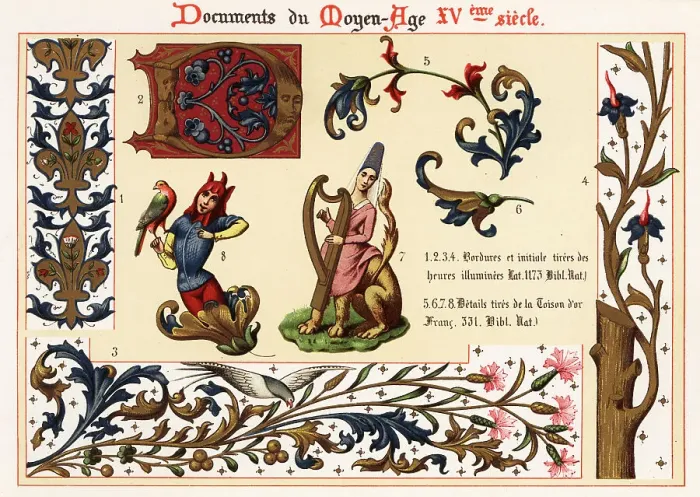 Documents du Moyen-Age XV ème siècle.
5
2
4
1
6
8
7
1.2.3.4. Bordures et initiale tirées des
heures illuminées Lat. 1173 Bibl. Nat.)
5.6.7.8. Détails tirés de la Toison d'or
Franç. 331. Bibl. Nat.)
3